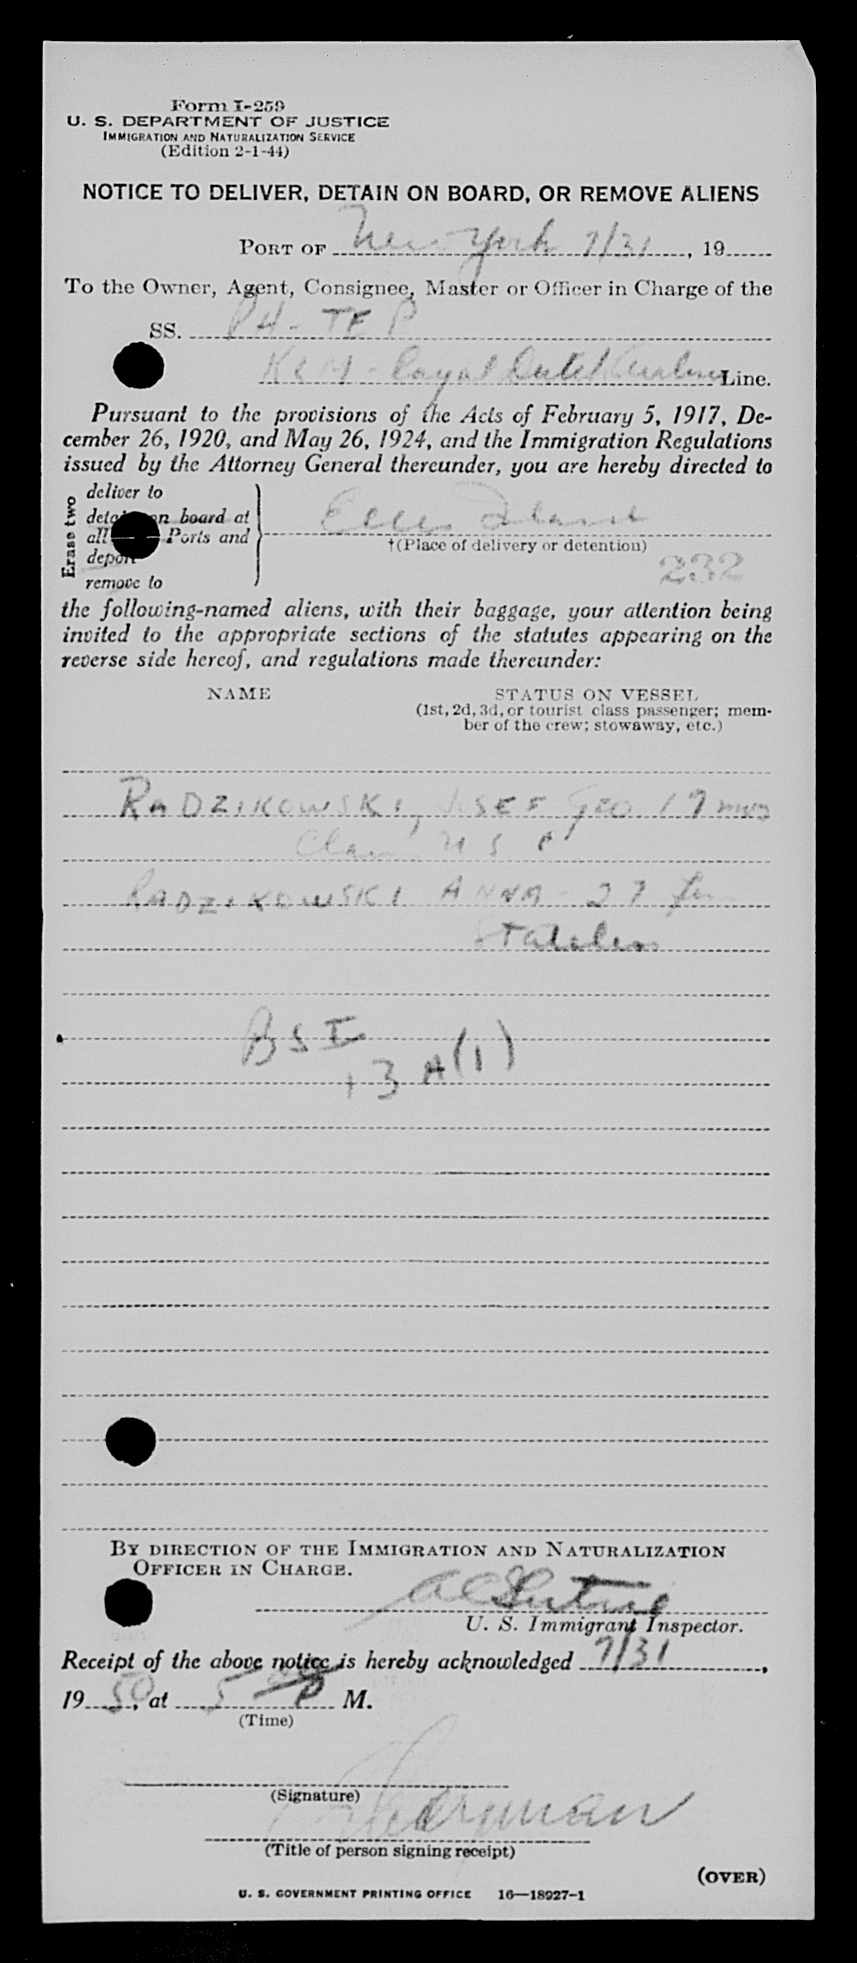 Form I-259
U. S. DEPARTMENT OF JUSTICE
IMMIGRATION AND NATURALIZATION SERVICE
(Edition 2-1-44)
NOTICE TO DELIVER, DETAIN ON BOARD, OR REMOVE ALIENS
PORT OF New York 7/31, 19
To the Owner, Agent, Consignee, Master or Officer in Charge of the
SS. PH-TEP
KLM - Royal Dutch Airlines Line.
Pursuant to the provisions of the Acts of February 5, 1917, De-
cember 26, 1920, and May 26, 1924, and the Immigration Regulations
issued by the Attorney General thereunder, you are hereby directed to
Erase two
deliver to
on board at
all Ports and
deport
remove to
Ellis Island
†(Place of delivery or detention)
232
the following-named aliens, with their baggage, your attention being
invited to the appropriate sections of the statutes appearing on the
reverse side hereof, and regulations made thereunder:
NAME STATUS ON VESSEL
(1st, 2d, 3d, or tourist class passenger; mem-
ber of the crew; stowaway, etc.)
RADZIKOWSKI, JOSEF Geo 17 mos
Claim U S C
RADZIKOWSKI ANNA - 27
Stateless
BSI
+3A(1)
BY DIRECTION OF THE IMMIGRATION AND NATURALIZATION
OFFICER IN CHARGE.
U. S. Immigrant Inspector.
Receipt of the above notice is hereby acknowledged 7/31,
1950, at 5 P M.
(Time)
(Signature)
(Title of person signing receipt)
(OVER)
U. S. GOVERNMENT PRINTING OFFICE 16—18927-1